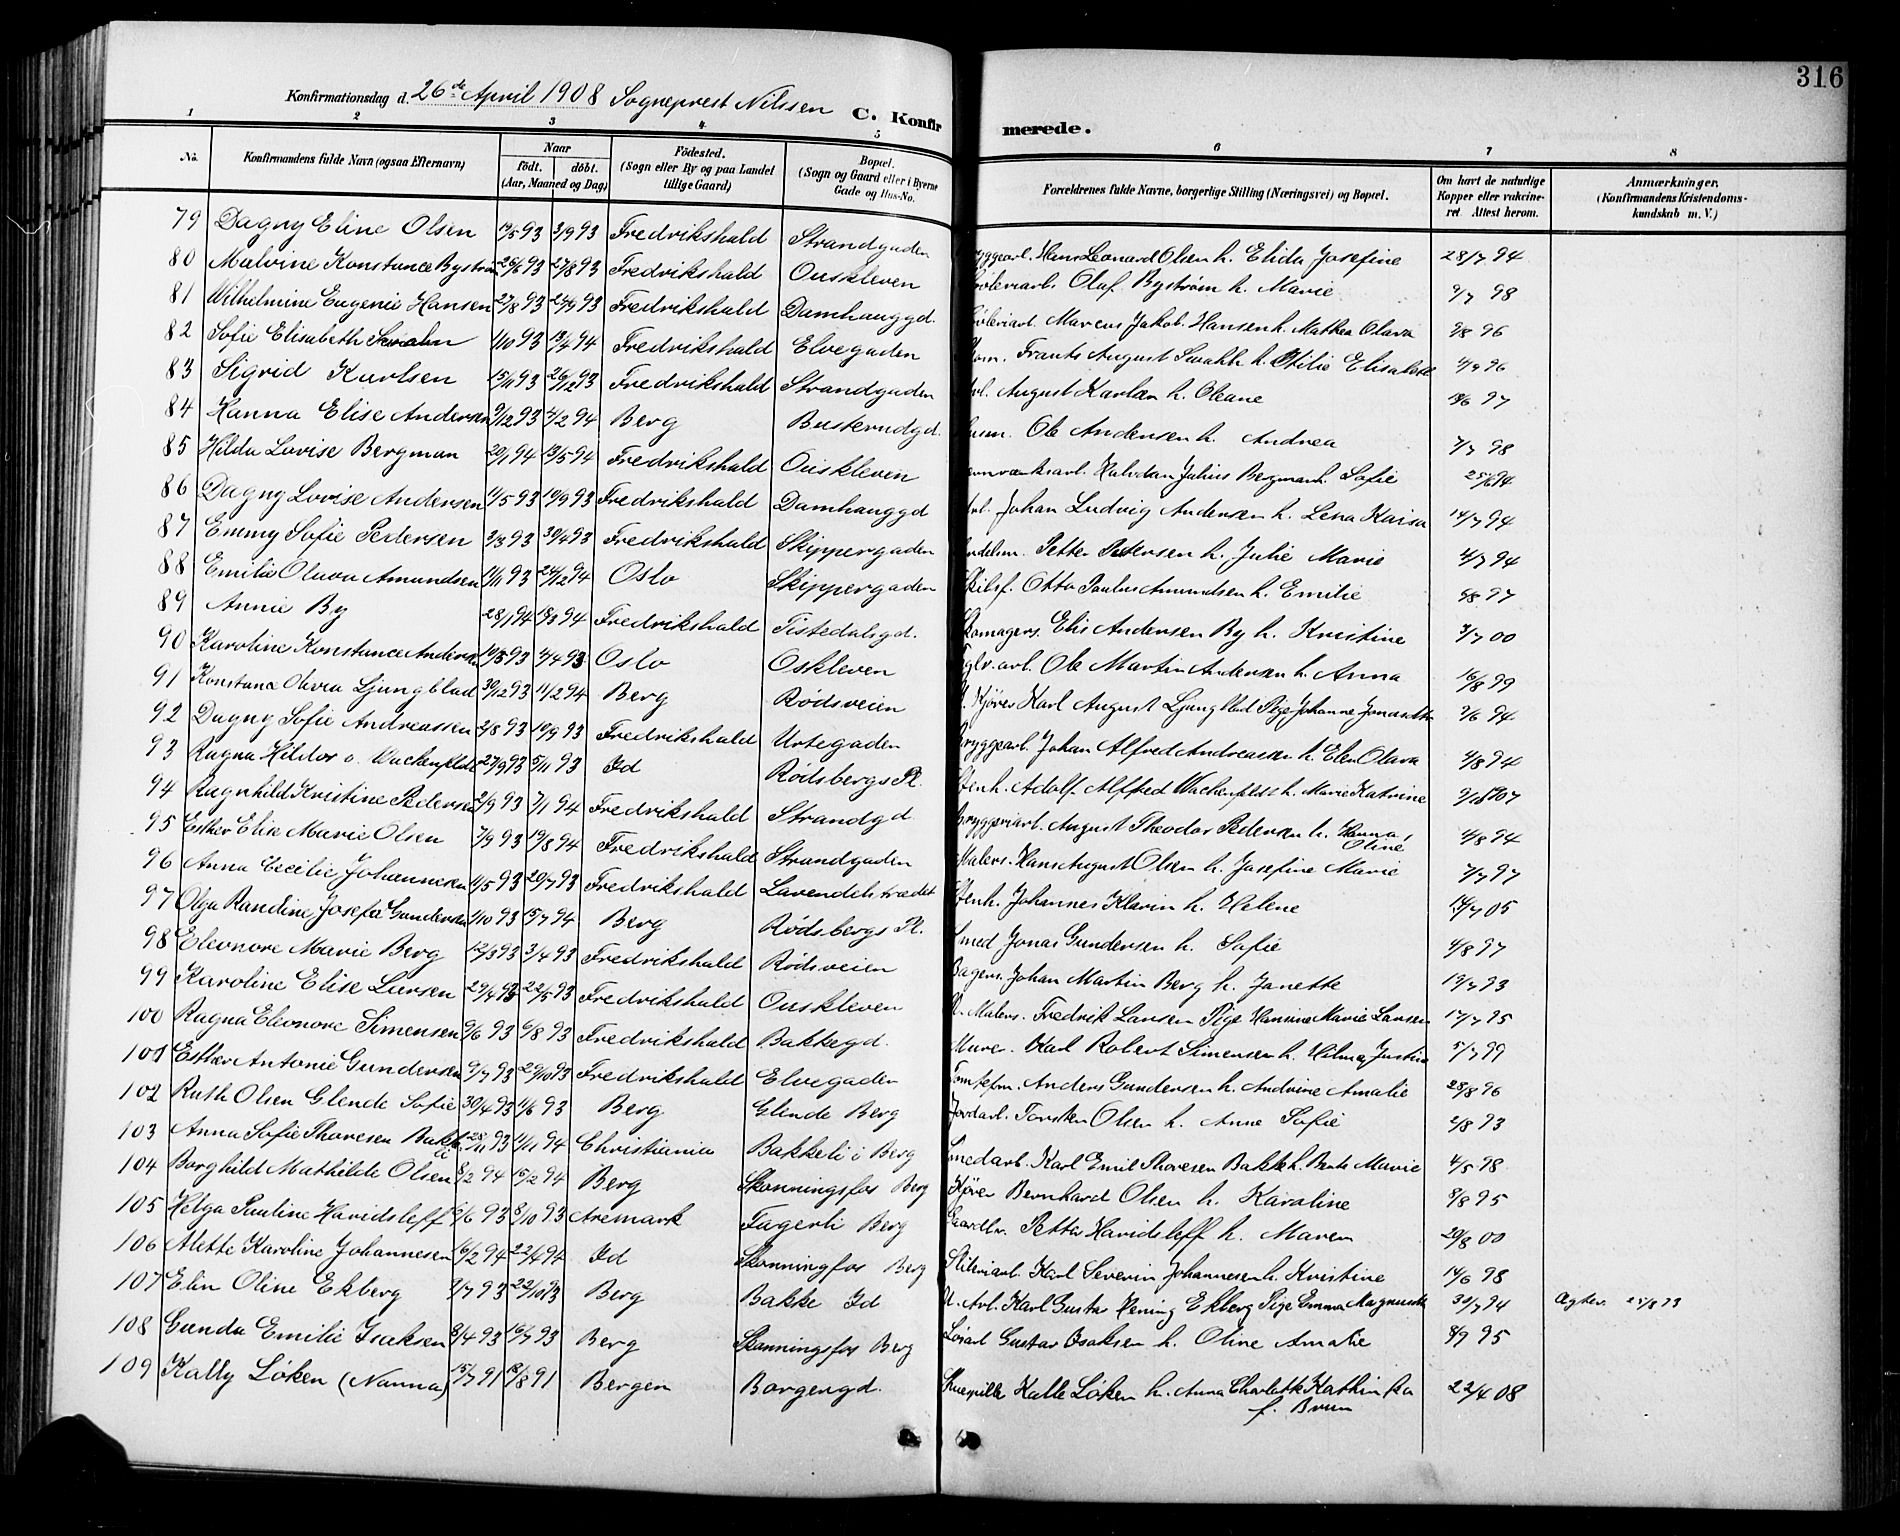 316
Konfirmationsdag d. 26de April 1908 Sogneprest Nilssen C. Konfirmerede.
1 2 3 4 5 6 7 8
No. Konfirmandens fulde Navn (ogsaa Efternavn) Naar født. døbt. (Aar, Maaned og Dag) Fødested. (Sogn eller By og paa Landet tillige Gaard) Bopæl. (Sogn og Gaard eller i Byerne Gade og Hus-No. Forældrenes fulde Navne, borgerlige Stilling (Næringsvei) og Bopæl. Om havt de naturlige Kopper eller vakcineret. Attest herom. Anmærkninger. (Konfirmandens Kristendomskundskab m. V.)
79 Dagny Eline Olsen 93 3/9 93 Fredrikshald Strandgaden Hans Leonard Olsen h. Elida Josefine 28/7 94
80 Malvine Konstance Byström 26/6 93 27/8 93 Fredrikshald Ouskleven Olaf Byström h. Marie 9/7 98
81 Wilhelmine Eugenie Hansen 27/8 93 93 Fredrikshald Damhauggd. Marcus Jakob Hansen h. Mathea Olava 96
82 Sofie Elisabeth 1/10 93 94 Fredrikshald Elvegaden Frants August h. Otilie Elisabeth 96
83 Sigrid Karlsen 15/11 93 26/12 93 Fredrikshald Strandgaden August Karlsen h. Oleane 97
84 Hanna Elise Andersen 9/12 93 94 Berg Busterudgd. Ole Andersen h. Andrea 7/7 98
85 Hilda Lovise Bergman 20/1 94 13/5 94 Fredrikshald Ouskleven Halvdan Julius Bergman h. Sofie 25/6 94
86 Dagny Lovise Andersen 11/5 93 10/9 93 Fredrikshald Damhauggd Johan Ludvig Andersen h. Lena Kaisa 14/7 94
87 Emmy Sofie Pedersen 3/3 93 30/4 93 Fredrikshald Skippergaden Petter Petersen h. Julie Marie 4/7 94
88 Emilie Olava Amundsen 93 94 Oslo Skippergaden Skibsf. Otto Paulus Amundsen h. Emilie 97
89 Annie By 28/1 94 18/3 94 Fredrikshald Tistedalsgd. Skomagers. Elis Andersen By h. Kristine 3/7 00
90 Karoline Konstance Andersen 93 93 Oslo Oskleven Ole Martin Andersen h. Anna 16/8 99
91 Konstance Olava Ljungblad 30/12 93 11/2 94 Berg Rødsveien U. Kjøres Karl August Ljungblad Pige Johanne 94
92 Dagny Sofie Andreassen 2/8 93 10/9 93 Fredrikshald Urtegaden Bryggearb. Johan Alfred Andreassen h. Elen Olava 4/8 94
93 Ragna Hildor o. 27/9 93 5/11 93 Id Rødsbergs Pl. Stenh. Adolf Alfred h. Marie Katrine
94 Ragnhild Kristine Pedersen 2/9 93 7/1 94 Fredrikshald Strandgd. August Theodor Pedersen h. Hanna Oline 4/8 94
95 Esther Elise Marie Olsen 7/9 93 19/8 94 Fredrikshald Strandgaden Malers. Hans August Olsen h. Josefine Marie 7/7 97
96 Anna Cecilie Johannesen 11/5 93 20/7 93 Fredrikshald Lavendelstrædet Stenh. Johannes Klarin h. Helene 05
97 Olga Randine Josefie Gundersen 1/10 93 15/7 94 Berg Rødsbergs Pl. Smed Jonas Gundersen h. Sofie 4/8 97
98 Eleonore Marie Berg 12/3 93 3/4 93 Fredrikshald Rødsveien Bagers. Johan Martin Berg h. Janette 19/7 93
99 Karoline Elise Larsen 29/4 93 22/5 93 Fredrikshald Ouskleven U. Malers. Fredrik Larsen Pige Hansine Marie Larsen 17/7 95
100 Ragna Eleonore Simensen 9/6 93 6/8 93 Fredrikshald Bakkegd. Murer Karl Robert Simensen h. Hilma Justine 5/7 99
101 Esther Antonie Gundersen 9/7 93 29/10 93 Fredrikshald Elvegaden Tomtefm. Anders Gundersen h. Andrine Amalie 28/8 96
102 Ruth Olsen Glende Sofie 30/4 93 11/6 93 Berg Glende Berg Jordarb. Torsten Olsen h. Anne Sofie 2/8 93
103 Anna Sofie Thoresen Bakke 28/11 93 11/11 94 Christiania Bakkeli i Berg Smedarb. Karl Emil Thoresen Bakke h. Marie 4/5 98
104 Borghild Mathilde Olsen 8/2 94 15/2 94 Berg Skonningsfos Berg Kjører Bernhard Olsen h. Karoline 8/8 95
105 Helga Pauline Havidsleff 6/6 93 8/10 93 Aremark Fagerli Berg Petter Havidsleff h. Maren 20/8 00
106 Alette Karoline Johannesen 16/2 94 22/4 94 Id Skonningfos Berg Sliberiarb. Karl Severin Johannesen h. Kristine 14/6 98
107 Elin Oline Ekberg 9/7 93 22/10 93 Berg Bakke Id U. Arb. Karl Gustav Hening Ekberg Pige Emma 30/7 94
108 Gunda Emilie Isaksen 8/4 93 16/7 93 Berg Skonningsfos Berg Gustav Isaksen h. Oline Amalie 8/9 95
109 Kally Løken (Nanna) 15/7 91 18/8 91 Bergen Borgergd. Kalle Løken h. Anna Charlotte Kathinka f. Bruun 22/4 08